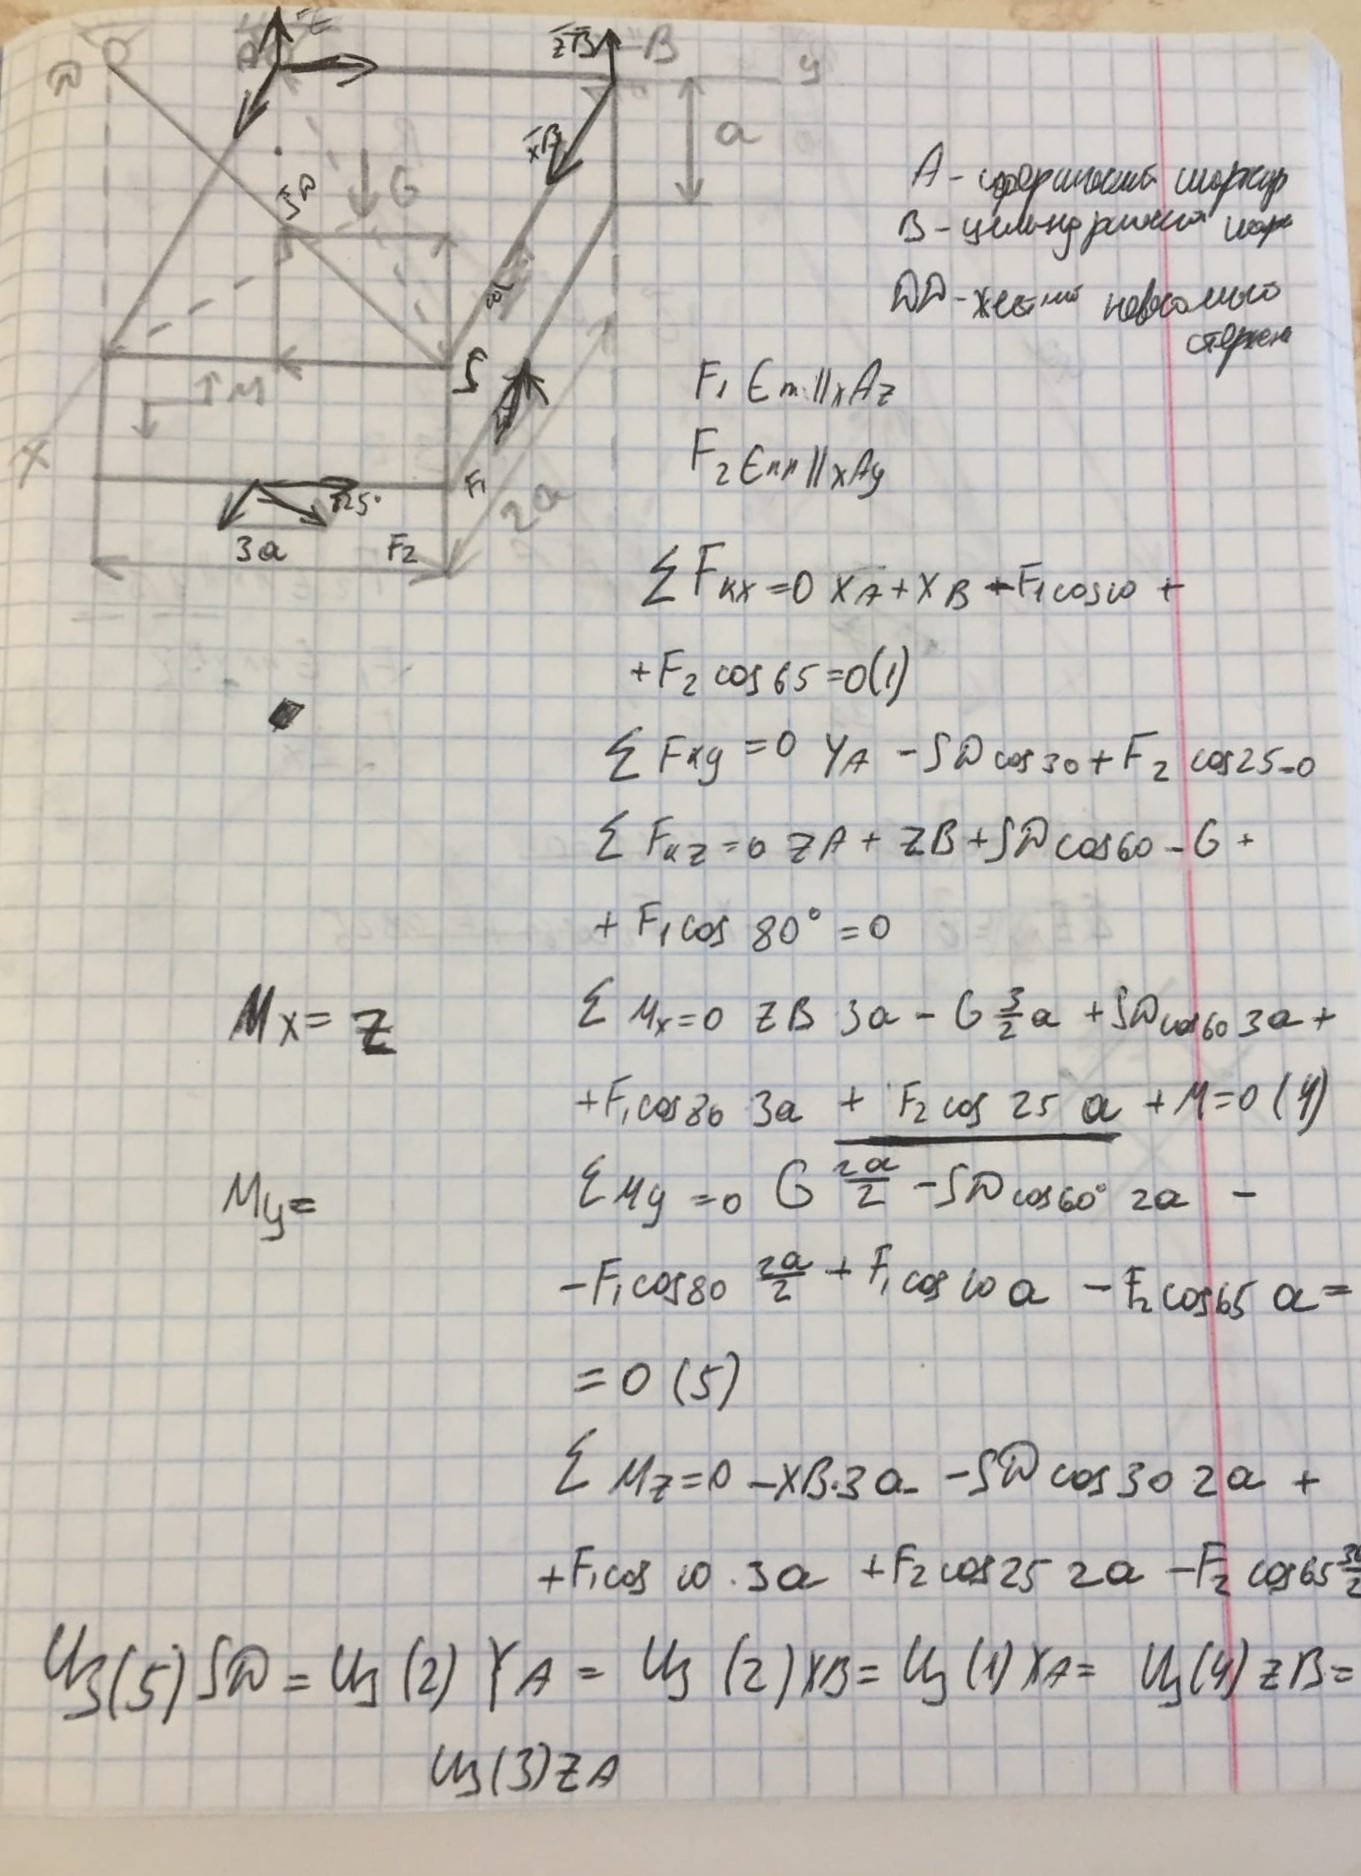 zB
B
y
xB
a
G
A - сферический шарнир
B - цилиндрический шарн
DD - жесткий невесомый
стержен
M
x
F₁
2a
25°
3a
F₂
F₁ ∈ пл || xAz
F₂ ∈ пл || xAy
∑ Fkx = 0 XA + XB - F₁ cos 10 +
+ F₂ cos 65 = 0 (1)
∑ Fky = 0 YA - SD cos 30 + F₂ cos 25 = 0
∑ Fkz = 0 ZA + ZB + SD cos 60 - G +
+ F₁ cos 80° = 0
Mx = z
∑ Mx = 0 ZB 3a - G 3/2 a + SD cos 60 3a +
+ F₁ cos 80 3a + F₂ cos 25 a + M = 0 (4)
My =
∑ My = 0 G 2a/2 - SD cos 60° 2a -
- F₁ cos 80 2a/2 + F₁ cos 10 a - F₂ cos 65 a =
= 0 (5)
∑ Mz = 0 - XB · 3a - SD cos 30 2a +
+ F₁ cos 10 · 3a + F₂ cos 25 2a - F₂ cos 65 3a/2
Из (5) SD = Из (2) YA = Из (2) XB = Из (1) XA = Из (4) ZB =
Из (3) ZA